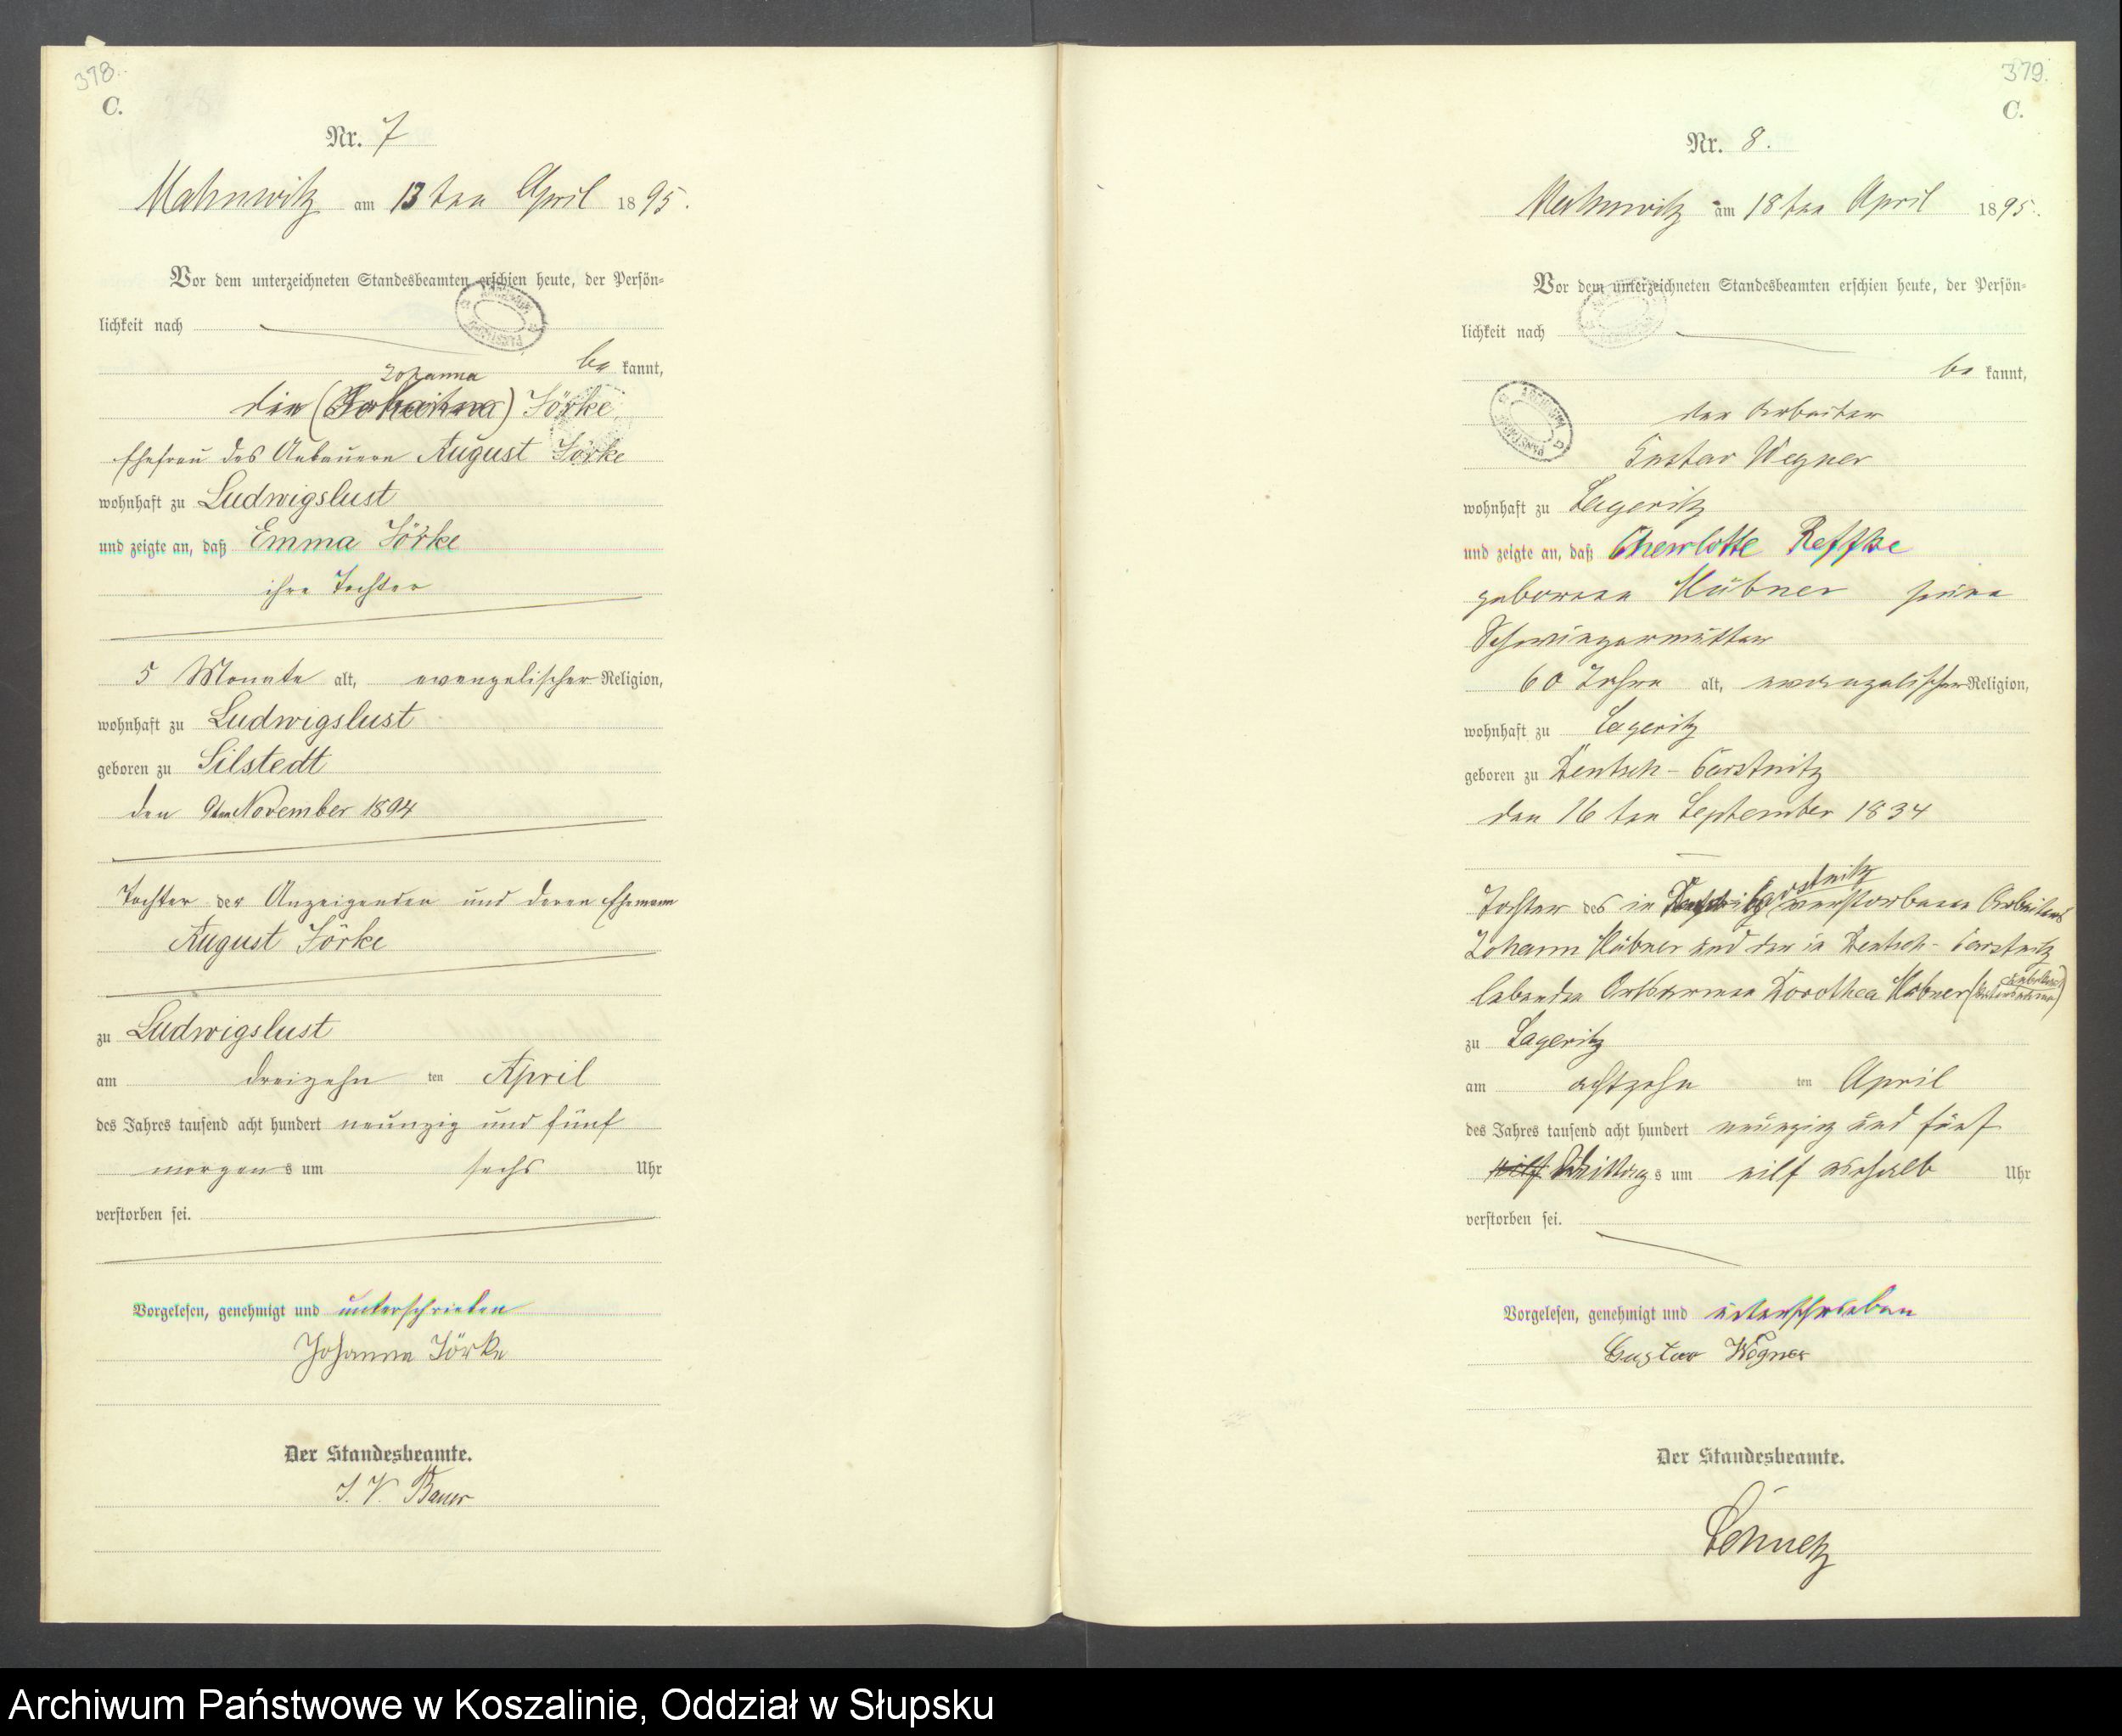 378.
C.
Nr. 7
Mahnwitz am 13ten April 1895.
Vor dem unterzeichneten Standesbeamten erschien heute, der Persön-
lichkeit nach
be kannt,
Johanna
die ( ) Jörke
Ehefrau des August Jörke
wohnhaft zu Ludwigslust
und zeigte an, daß Emma Jörke
ihre Tochter
5 Monate alt, evangelischer Religion,
wohnhaft zu Ludwigslust
geboren zu Silstedt
den 9ten November 1894
Tochter der Anzeigenden und deren Ehemann
August Jörke
zu Ludwigslust
am dreizehn ten April
des Jahres tausend acht hundert neunzig und fünf
morgens um sechs Uhr
verstorben sei.
Vorgelesen, genehmigt und unterschrieben
Johanna Jörke
Der Standesbeamte.
J. V. Bauer
379.
C.
Nr. 8.
Mahnwitz am 18ten April 1895.
Vor dem unterzeichneten Standesbeamten erschien heute, der Persön-
lichkeit nach
be kannt,
der Arbeiter
Gustav Wegner
wohnhaft zu Lageritz
und zeigte an, daß Charlotte Reffke
geborene Hübner seine
Schwiegermutter
60 Jahre alt, evangelischer Religion,
wohnhaft zu Lageritz
geboren zu Deutsch-Carstnitz
den 16ten September 1834
Tochter des in verstorbenen Arbeiters
Johann Hübner und der in Deutsch-Carstnitz
lebenden Ortsarmen Dorothea Hübner
zu Lageritz
am achtzehn ten April
des Jahres tausend acht hundert neunzig und fünf
Mittags um eilf einhalb Uhr
verstorben sei.
Vorgelesen, genehmigt und unterschrieben
Gustav Wegner
Der Standesbeamte.
Archiwum Państwowe w Koszalinie, Oddział w Słupsku